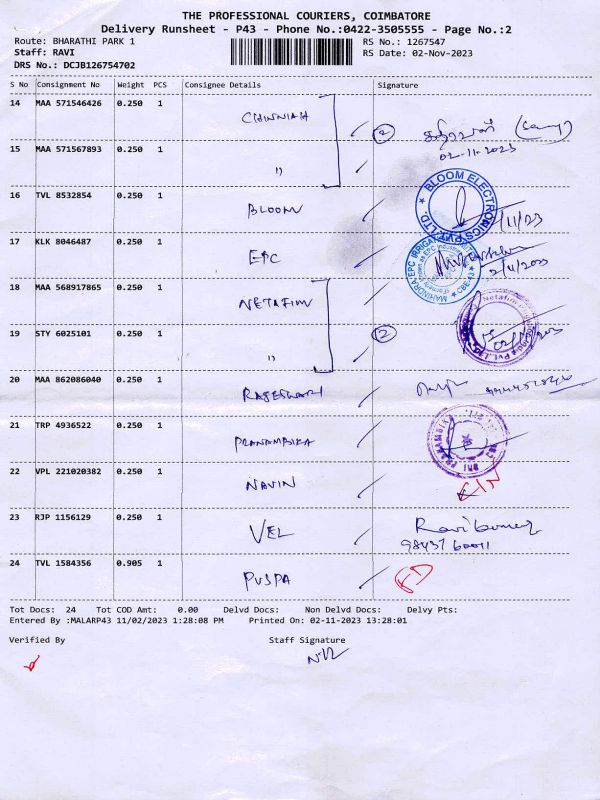 THE PROFESSIONAL COURIERS, COIMBATORE
Delivery Runsheet - P43 - Phone No.:0422-3505555 - Page No.:2
Route: BHARATHI PARK 1 RS No.: 1267547
Staff: RAVI RS Date: 02-Nov-2023
DRS No.: DCJB126754702
S No Consignment No Weight PCS Consignee Details Signature
14 MAA 571546426 0.250 1 CHINNIAH 2
02-11-2023
15 MAA 571567893 0.250 1 "
16 TVL 8532854 0.250 1 BLOOM BLOOM ELECTRONICS PVT. LTD. /11/23
17 KLK 8046487 0.250 1 EPC MAHINDRA EPC IRRIGATION CBE-43
18 MAA 568917865 0.250 1 NETAFIM Netafim
19 STY 6025101 0.250 1 " 2
20 MAA 862086040 0.250 1 RAJESWARI
21 TRP 4936522 0.250 1 PRANAMBIKA SRI PRANAMBIKA
22 VPL 221020382 0.250 1 NAVIN
23 RJP 1156129 0.250 1 VEL Ravikumar
98437 60011
24 TVL 1584356 0.905 1 PUSPA
Tot Docs: 24 Tot COD Amt: 0.00 Delvd Docs: Non Delvd Docs: Delvy Pts:
Entered By :MALARP43 11/02/2023 1:28:08 PM Printed On: 02-11-2023 13:28:01
Verified By Staff Signature